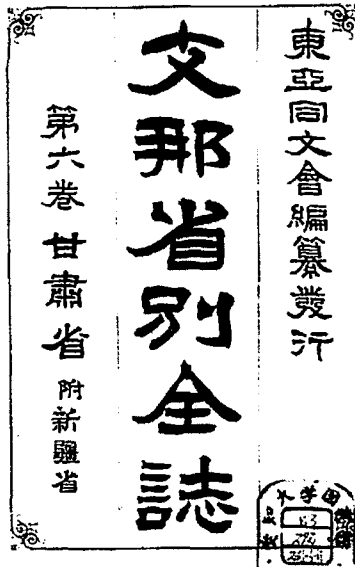 東亞同文會編纂發行
支那省別全誌
第六卷 甘肅省 附新疆省